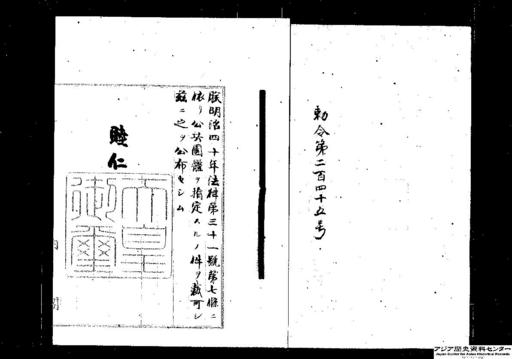 勅令第二百四十五号
朕明治四十年法律第三十一號第七條ニ
依リ公共團體ヲ指定スルノ件ヲ裁可シ
茲ニ之ヲ公布セシム
睦仁
天皇
御璽
アジア歴史資料センター
Japan Center for Asian Historical Records